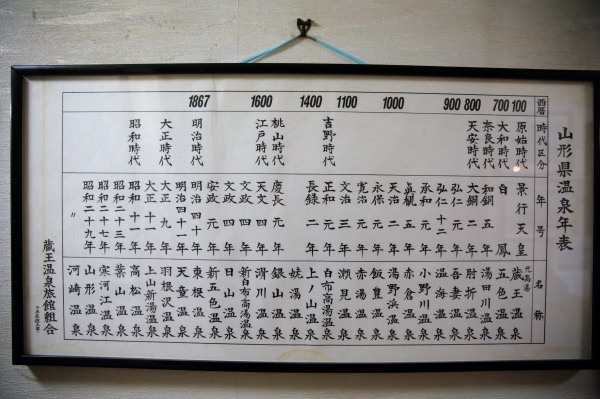 山形県温泉年表
西暦
時代区分
年号
名称
100
700
800
900
1000
1100
1400
1600
1867
原始時代
大和時代
奈良時代
天安時代
吉野時代
桃山時代
江戸時代
明治時代
大正時代
昭和時代
景行天皇
白鳳
和銅五年
大銅二年
弘仁元年
弘仁十二年
承和元年
貞観五年
天治二年
永保元年
寛治元年
文治三年
正和元年
長録二年
慶長元年
天文四年
文政四年
文政四年
安政元年
明治十年
明治四十二年
大正九年
大正十一年
昭和十一年
昭和二十三年
昭和二十七年
昭和二十九年
〃
元高湯
蔵王温泉
五色温泉
湯田川温泉
肘折温泉
吾妻温泉
温海温泉
小野川温泉
赤倉温泉
湯野浜温泉
飯豊温泉
赤湯温泉
瀬見温泉
白布高湯温泉
上ノ山温泉
姥湯温泉
銀山温泉
滑川温泉
新白布高湯温泉
日山温泉
新五色温泉
東根温泉
天童温泉
羽根沢温泉
上山新湯温泉
高松温泉
葉山温泉
寒河江温泉
山形温泉
河崎温泉
蔵王温泉旅館組合